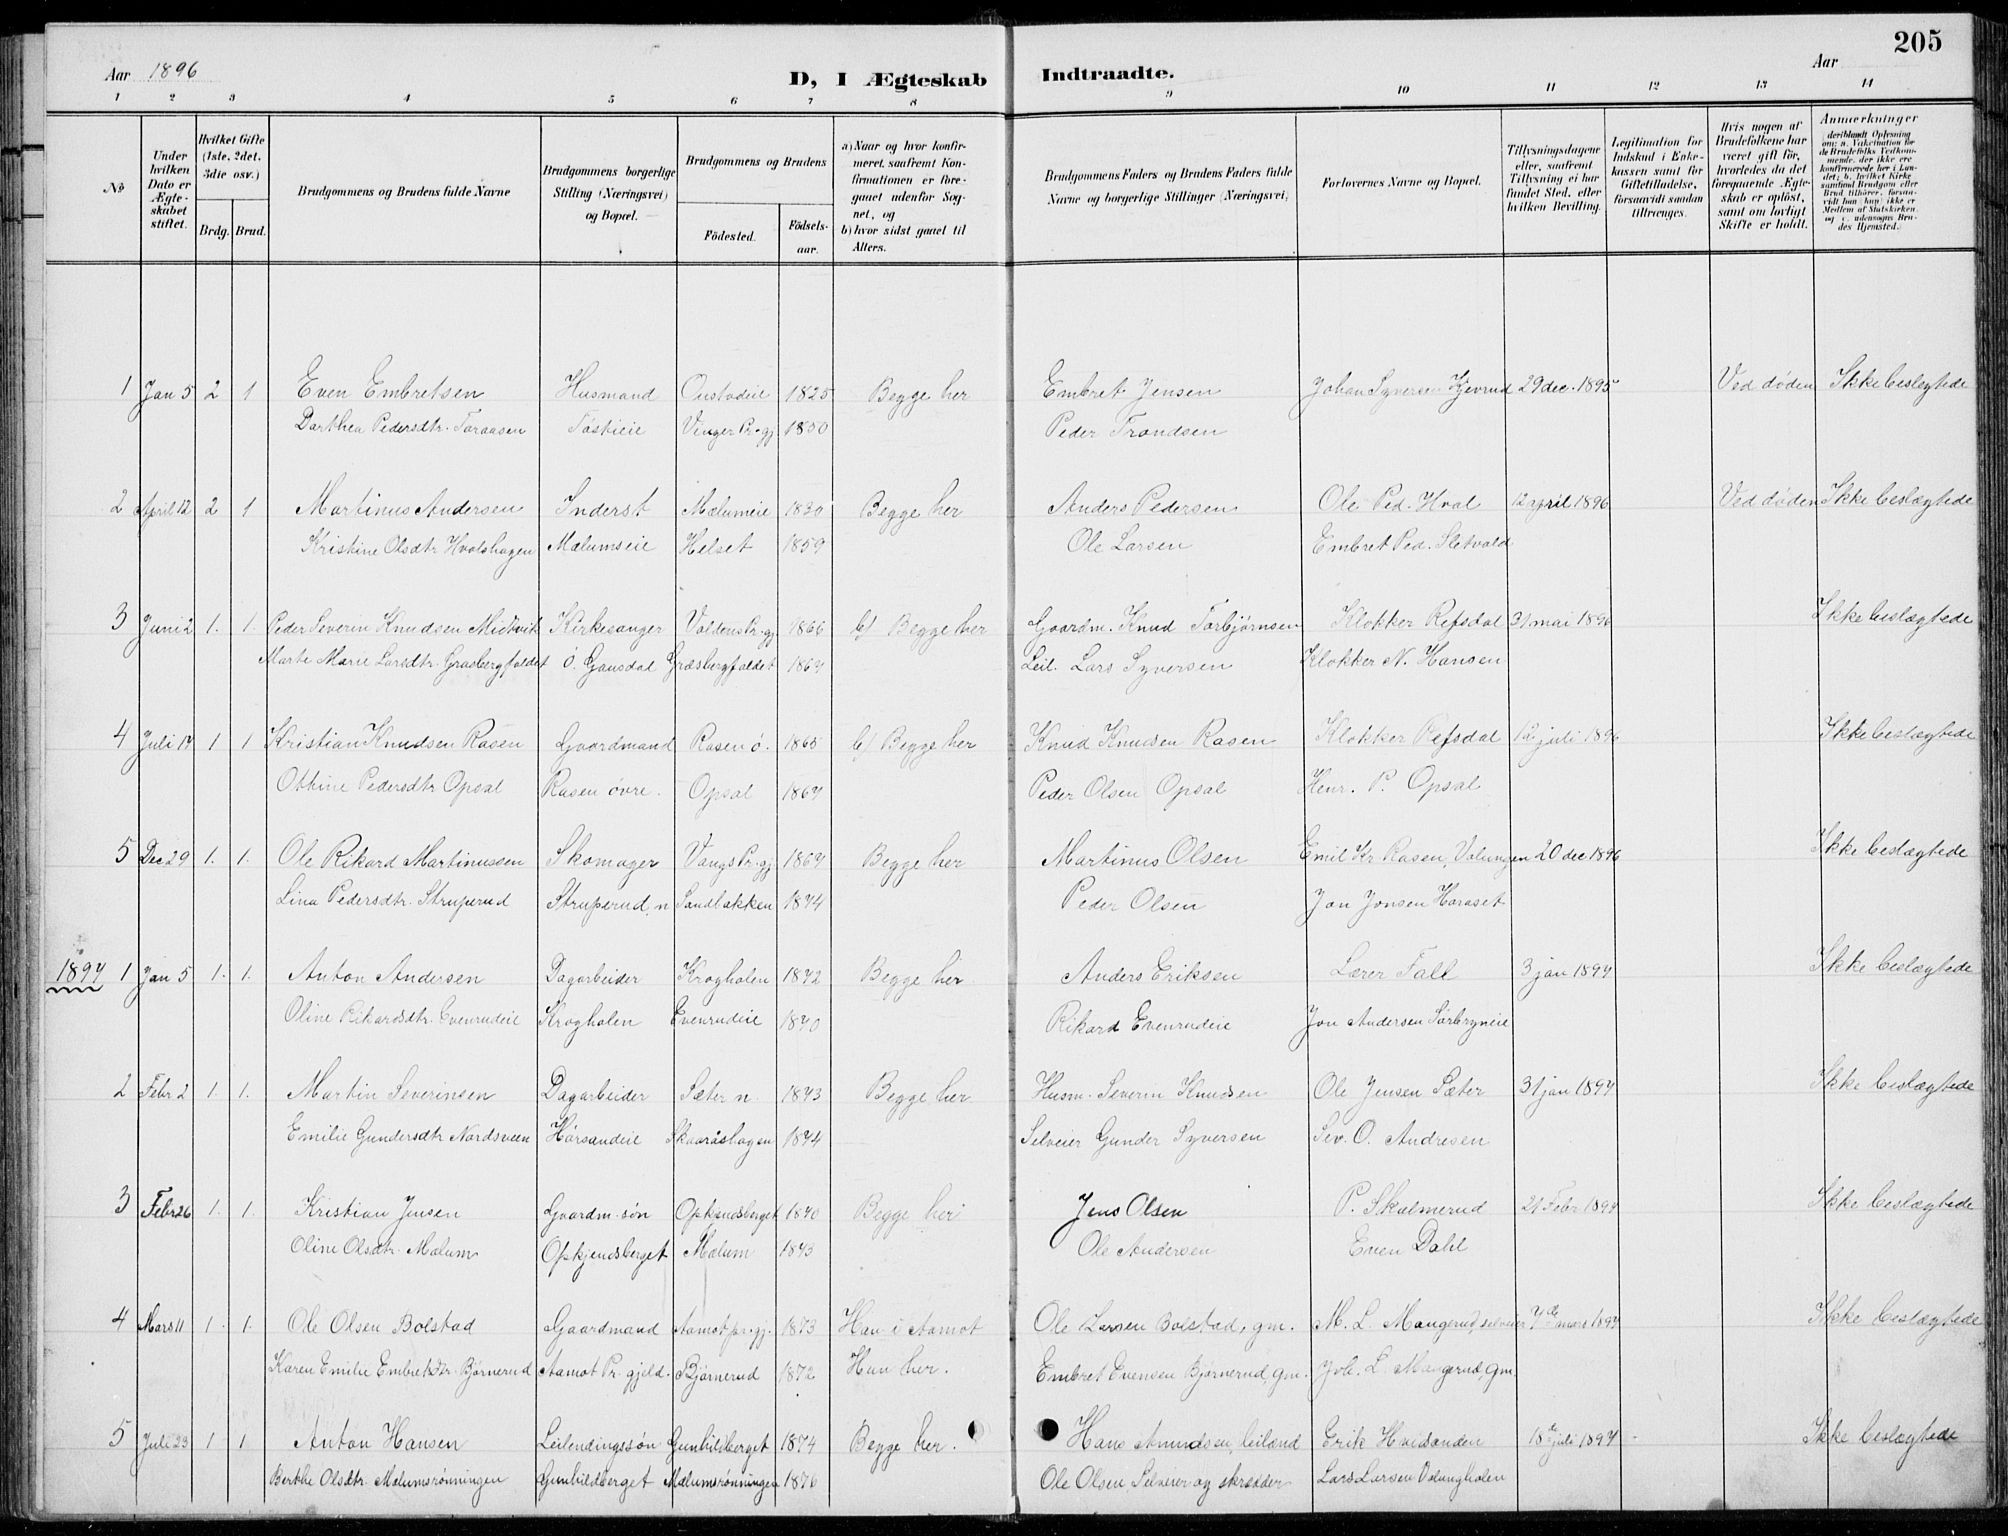 205
Aar 1896 D, I Ægteskab Indtraadte. Aar
1 2 3 4 5 6 7 8 9 10 11 12 13 14
No
Under hvilken Dato er Ægteskabet stiftet.
Hvilket Gifte (1ste, 2det, 3die osv.)
Brdg. Brud.
Brudgommens og Brudens fulde Navne
Brudgommens borgerlige Stilling (Næringsvei) og Bopæl.
Brudgommens og Brudens
Fødested.
Fødselsaar.
a) Naar og hvor konfirmeret, saafremt Konfirmationen er foregaaet udenfor Sognet, og
b) hvor sidst gaaet til Alters.
Brudgommens Faders og Brudens Faders fulde Navne og borgerlige Stillinger (Næringsvei)
Forlovernes Navne og Bopæl.
Tillysningsdagene eller, saafremt Tillysning ei har fundet Sted, efter hvilken Bevilling.
Legitimation for Indskud i Enkekassen samt for Giftetilladelse, forsaavidt saadan tiltrænges.
Hvis nogen af Brudefolkene har været gift før, hvorledes da det foregaaende Ægteskab er opløst, samt om lovligt Skifte er holdt.
Anmærkninger
1 Jan 5 2 1 Even Embretsen Husmand 1825 Begge her Embret Jensen Johan Syversen Kjevrud 29 dec. 1895 Ved døden Ikke beslegtede
Darthea Pedersdtr. Taraasen Tostieie Vinger Pr.gj. 1850 Peder Trondsen
2 April 12 2 1 Martinus Andersen Inderst Mælumeie 1830 Begge her Anders Pedersen Ole Ped. Hval 12 april 1896 Ved døden Ikke beslægtede
Kristine Olsdtr. Hvalshagen Mælumseie Helset 1859 Ole Larsen Embret Ped. Sletvold
3 Juni 2 1. 1. Peder Severin Knudsen Midtvik Kirkesanger Voldens Pr.gj. 1866 b/ Begge her Gaardm. Knud Torbjørnsen Klokker Refsdal 31 mai 1896 Ikke beslægtede
Marte Marie Larsdtr. Græsbergfaldet Ö. Gausdal Græsbergfaldet 1867 Leil. Lars Syversen Klokker N. Hansen
4 Juli 14 1 1 Kristian Knudsen Rasen Gaardmand Rasen ö. 1865 b/ Begge her Knud Knudsen Rasen Klokker Refsdal 12 juli 1896 Ikke beslægtede
Othine Pedersdtr. Opsal Rasen övre. Opsal 1867 Peder Olsen Opsal Henr. P. Opsal
5 Dec 29 1. 1. Ole Rikard Martinussen Skomager Vangs Pr.gj. 1869 Begge her Martinus Olsen Emil Kr. Rasen, Valungen 20 dec 1896 Ikke beslægtede
Lina Pedersdtr. Struperud Struperud, n Sandbakken 1874 Peder Olsen Jon Jonsen Haraset
1897 1 Jan 5 1. 1. Anton Andersen Dagarbeider Kroghølen 1872 Begge her Anders Eriksen Lærer Fall 3 jan 1897 Ikke beslægtede
Oline Rikardsdtr. Evenrudeie Kroghølen Evenrudeie 1870 Rikard Evenrudeie Jon Andersen Sørbryneie
2 Febr 2 1. 1. Martin Severinsen Dagarbeider Sæter n. 1873 Begge her Husm. Severin Knudsen Ole Jensen Sæter 31 jan 1897 Ikke beslægtede
Emilie Gundersdtr Nordsveen Hörsandeie Skaaråshagen 1874 Selveier Gunder Syversen Sev. O. Andresen
3 Febr 26 1. 1. Kristian Jensen Gaardm. søn Opkjendsberget 1870 Begge her Jens Olsen P. Skalmerud 21 Febr. 1897 Ikke beslægtede
Oline Olsdtr. Mælum Opkjendsberget Mælum 1873 Ole Andersen Even Dahl
4 Mars 11 1. 1. Ole Olsen Bolstad Gaardmand Aamot pr.gj. 1873 Han i Aamot Ole Larsen Bolstad, gm. M. L. Mangerud, selveier 7de mars 1897 Ikke beslægtede
Karen Emilie Embretsdtr. Bjørnerud Aamot Pr.gjeld. Bjørnerud 1872 Hun her. Embret Evensen Bjørnerud, gm. Joh. L. Mangerud, gm.
5 Juli 23 1 1 Anton Hansen Leilendingssøn Gunhildberget 1874 Begge her. Hans Amundsen, leilænd Erik Hvidsanden 18de juli 1897 Ikke beslægtede
Berthe Olsdtr. Mælumsrønningen Gunhildberget Mælumsrønningen 1876 Ole Olsen Selveier og skrædder Lars Larsen Valungholen